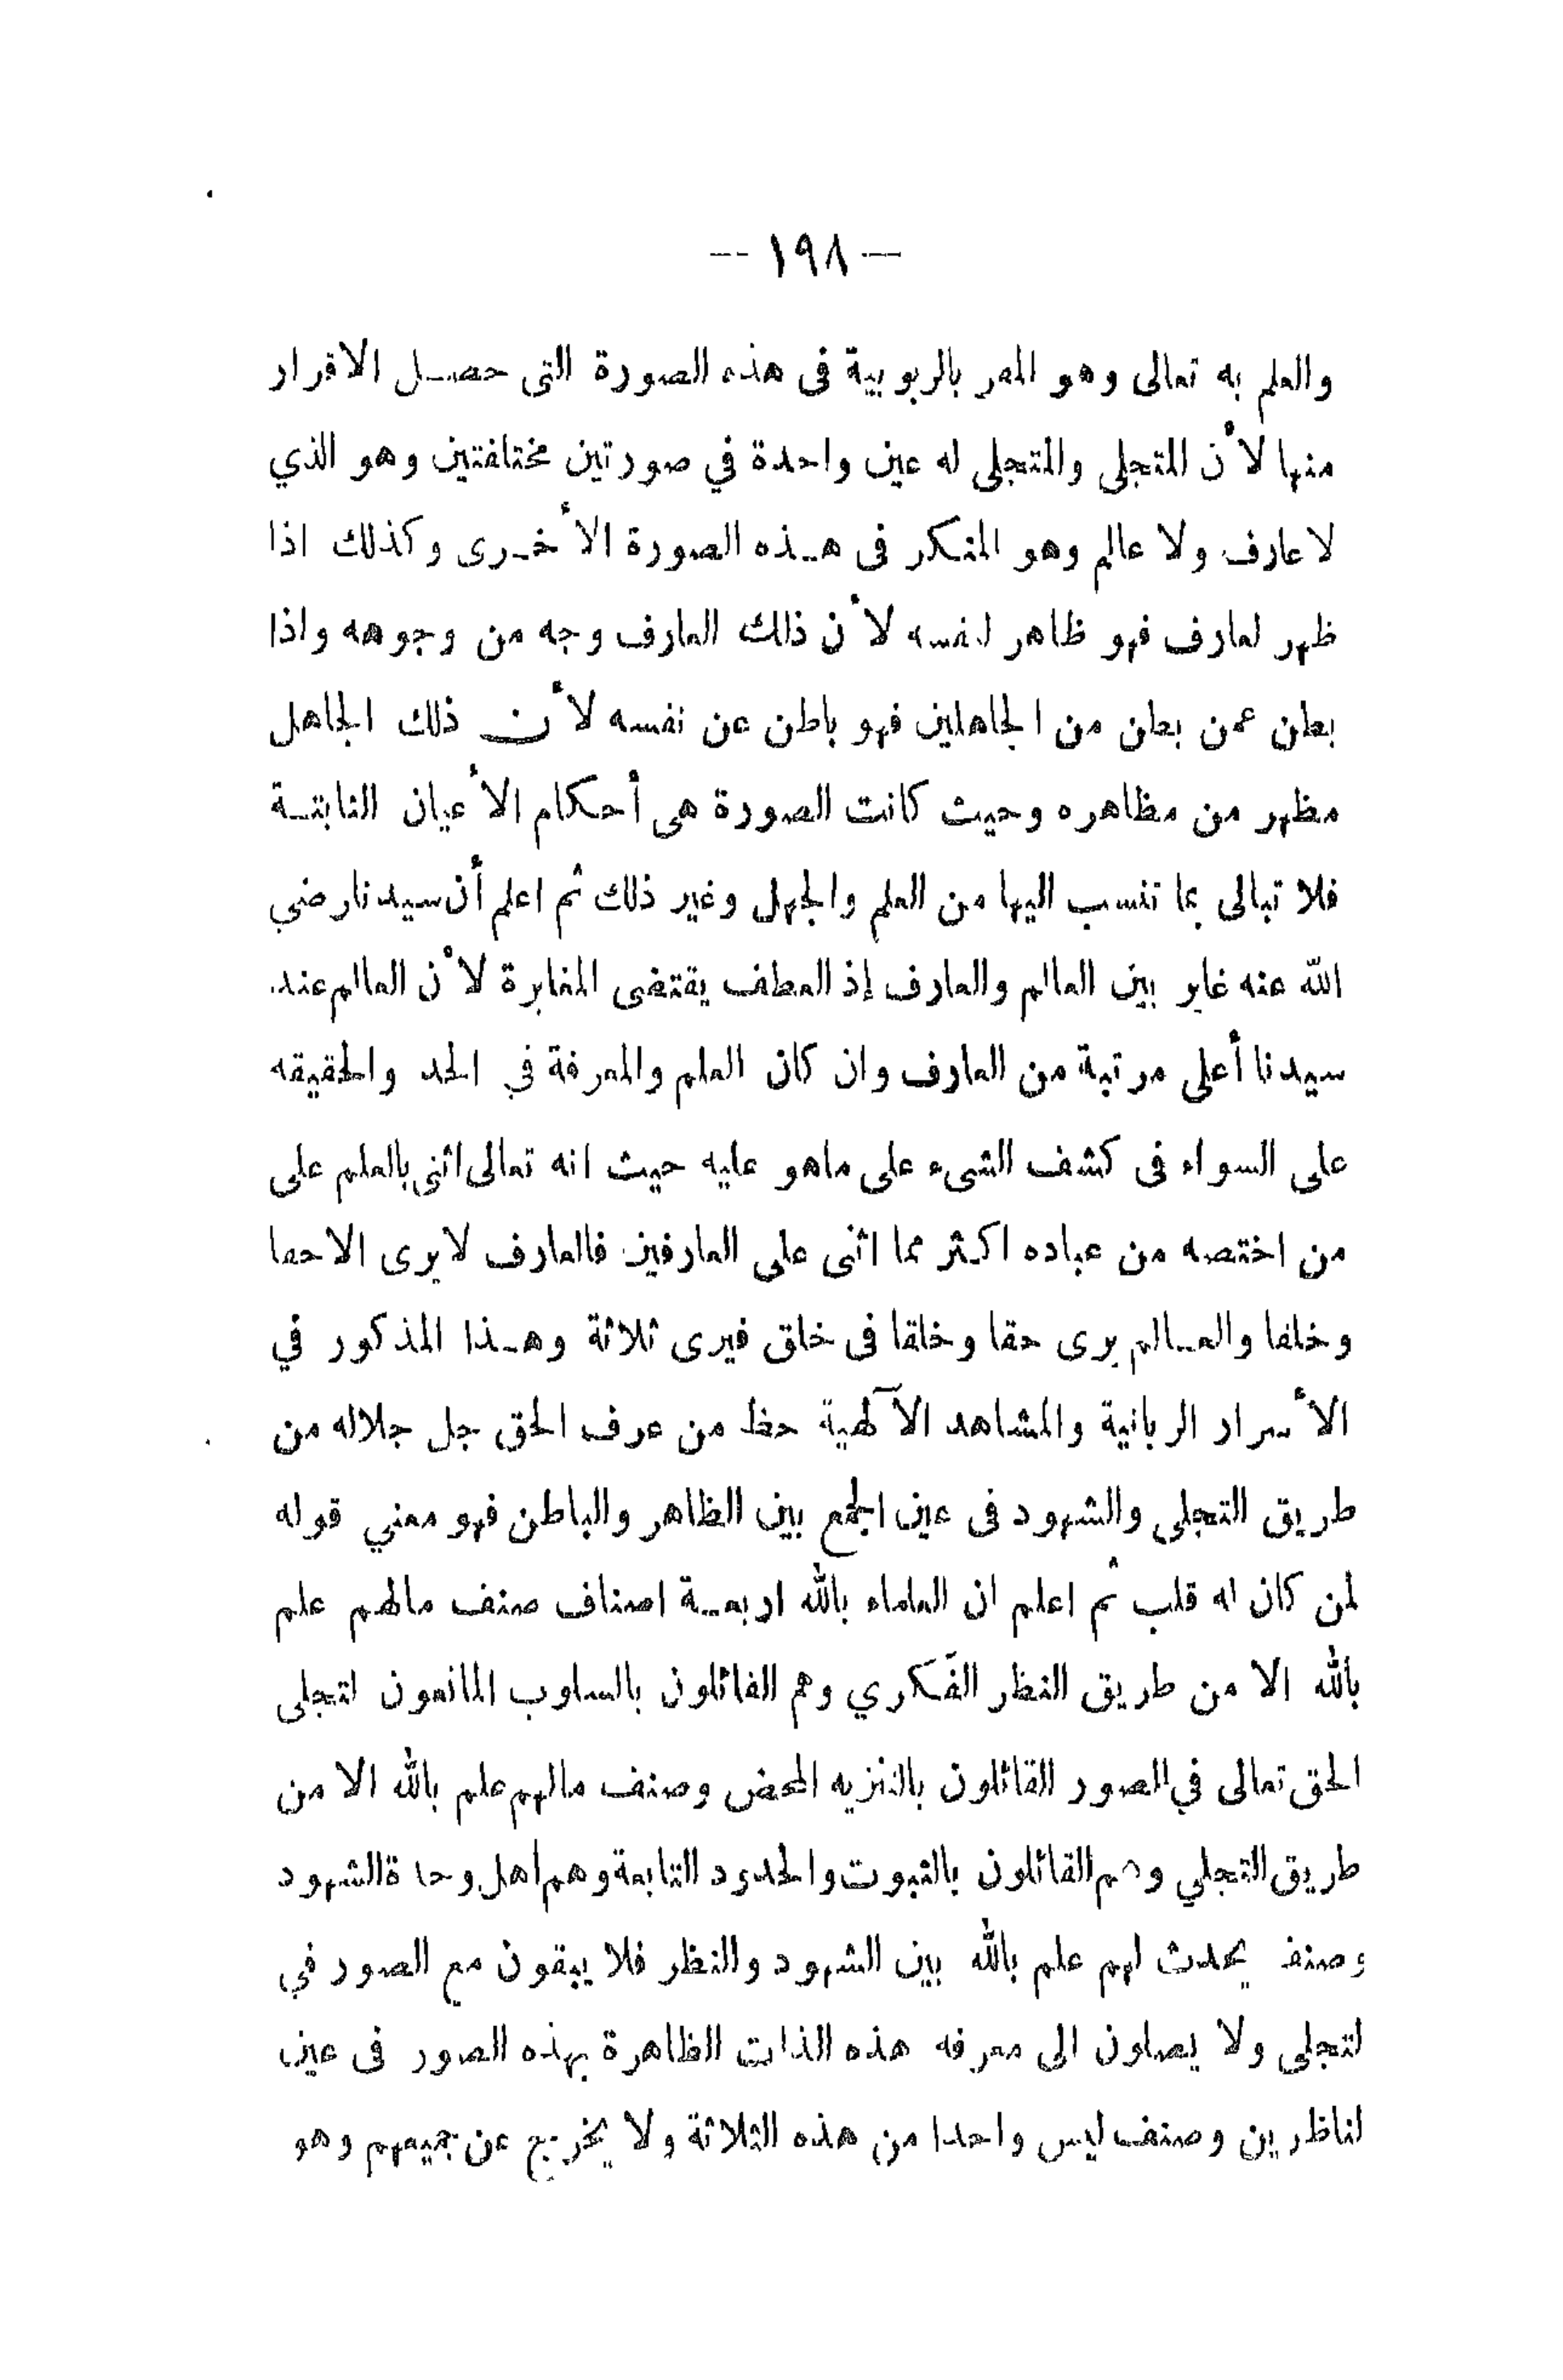 — ١٩٨ —
والعلم به تعالى وهو المقر بالربوبية فى هذه الصورة التى حصل الاقرار
منها لأن المتجلى والمتجلى له عين واحدة في صورتين مختلفتين وهو الذي
لا عارف ولا عالم وهو المنكر فى هذه الصورة الأخرى وكذلك اذا
ظهر لعارف فهو ظاهر لنفسه لأن ذلك العارف وجه من وجوهه واذا
بطن عمن بطن من الجاهلين فهو باطن عن نفسه لأن ذلك الجاهل
مظهر من مظاهره وحيث كانت الصورة هى أحكام الأعيان الثابتة
فلا تبالى بما تنسب اليها من العلم والجهل وغير ذلك ثم اعلم أن سيدنا رضي
الله عنه غاير بين العالم والعارف إذ العطف يقتضى المغايرة لأن العالم عند
سيدنا أعلى مرتبة من العارف وان كان العلم والمعرفة في الحد والحقيقه
على السواء فى كشف الشىء على ماهو عليه حيث انه تعالى اثنى بالعلم على
من اختصه من عباده اكثر مما اثنى على العارفين فالعارف لا يرى الا حقا
وخلقا والعالم يرى حقا وخلقا فى خلق فيرى ثلاثة وهذا المذكور في
الأسرار الربانية والمشاهد الآلهية حظ من عرف الحق جل جلاله من
طريق التجلى والشهود فى عين الجمع بين الظاهر والباطن فهو معني قوله
لمن كان له قلب ثم اعلم ان العلماء بالله اربعة اصناف صنف مالهم علم
بالله الا من طريق النظر الفكري وهم القائلون بالسلوب المانعون لتجلى
الحق تعالى في الصور القائلون بالتنزيه المحض وصنف مالهم علم بالله الا من
طريق التجلي وهم القائلون بالثبوت والحدود التابعة وهم اهل وحدة الشهود
وصنف يحدث لهم علم بالله بين الشهود والنظر فلا يبقون مع الصور في
لتجلى ولا يصلون الى معرفه هذه الذات الظاهرة بهذه الصور فى عين
لناظرين وصنف ليس واحدا من هذه الثلاثة ولا يخرج عن جميعهم وهو